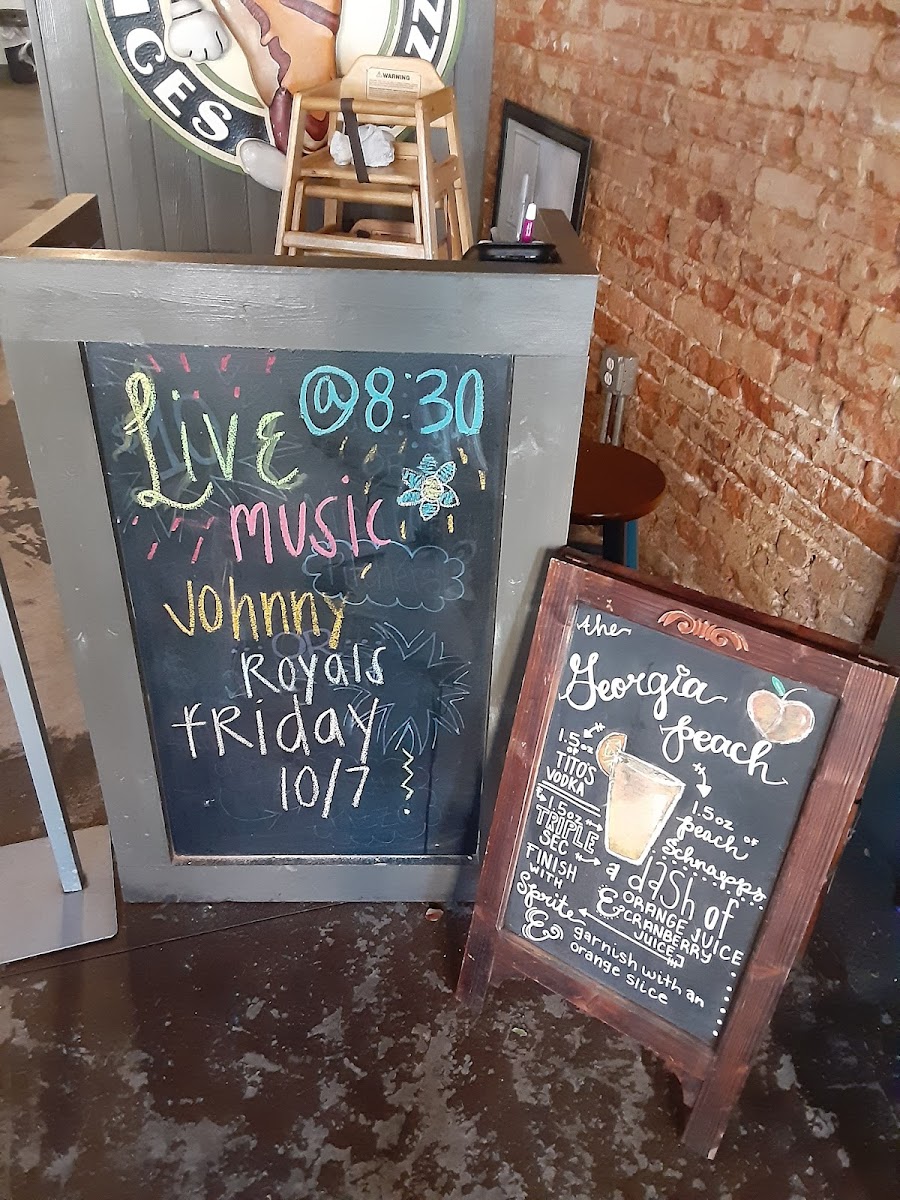 ICES
ZZ
WARNING
Live @ 8:30
music
Johnny
Royals
FRiday
10/7
the
Georgia
peach
1.5 oz
of
TITO'S
VODKA
1.5 oz
TRIPLE
SEC
1.5 oz of
peach
Schnapps
a dash of
ORANGE JUICE
& CRANBERRY
JUICE
FINISH
WITH
Sprite
&
garnish with an
orange slice